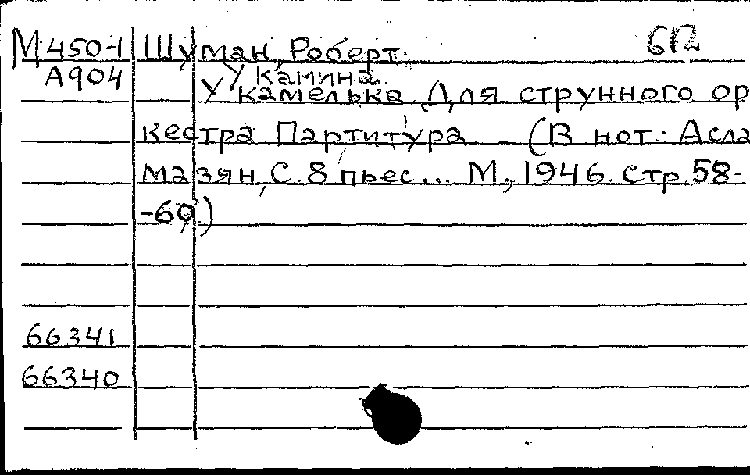 М450-1 Шуман, Роберт. 612
А904 У камина.
У камелька. Для струнного ор
кестра Партитура (В нот.: Асла
мазян, С. 8 пьес... М., 1946. стр. 58-
-60.)
66341
66340